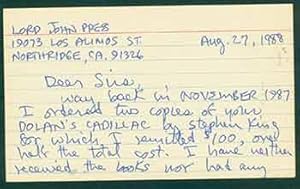 LORD JOHN PRESS
19073 LOS ALIMOS ST.
NORTHRIDGE, CA. 91326
Aug. 27, 1988
Dear Sirs,
Way back in NOVEMBER 1987
I ordered two copies of your
DOLAN'S CADILLAC by Stephen King
for which I remitted $100, over
half the total cost. I have neither
received the books nor had any